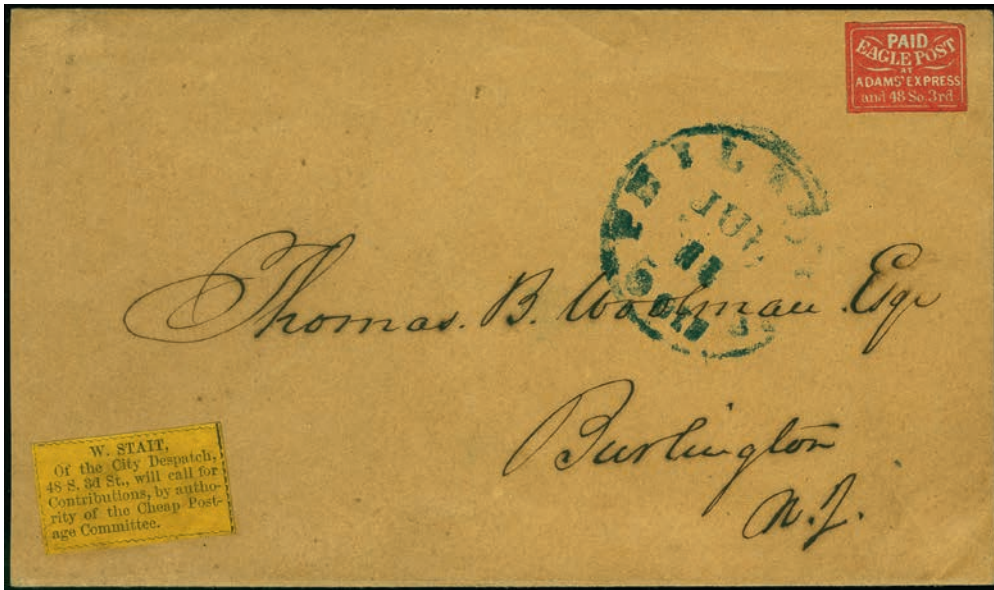 PAID
EAGLE POST
AT
ADAMS' EXPRESS
and 48 So 3rd
11
Thomas. B. Woolman Esqr
Burlington
N. J.
W. STAIT,
Of the City Despatch,
48 S. 3d St., will call for
Contributions, by autho-
rity of the Cheap Post-
age Committee.